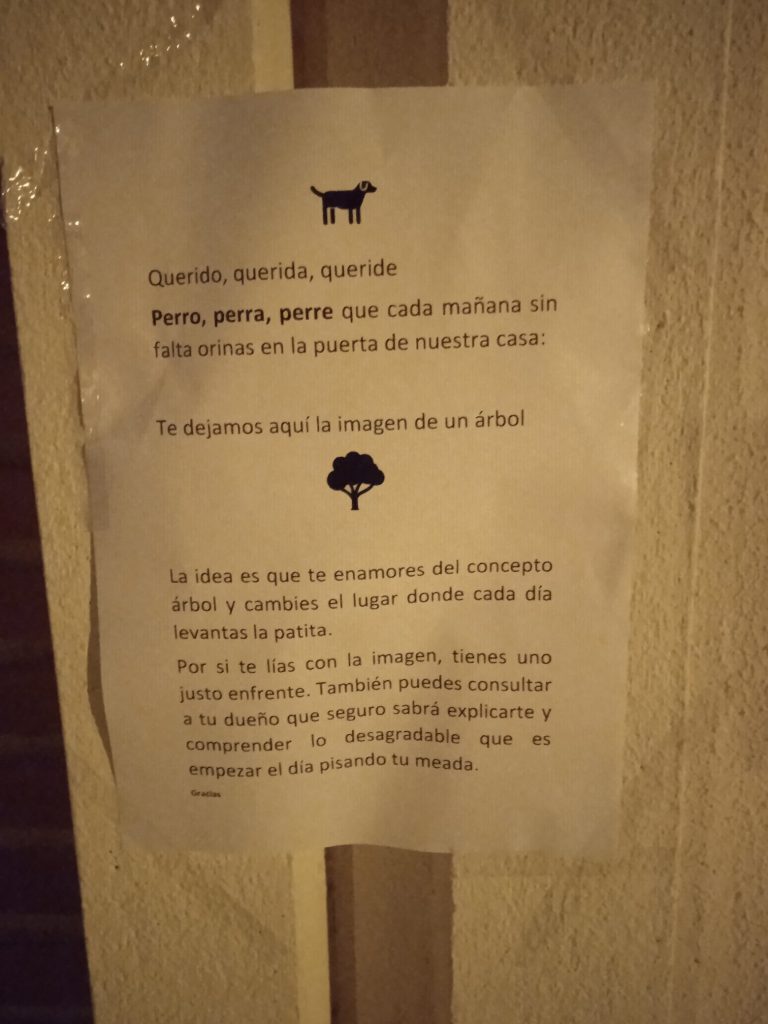 Querido, querida, queride
Perro, perra, perre que cada mañana sin
falta orinas en la puerta de nuestra casa:
Te dejamos aquí la imagen de un árbol
La idea es que te enamores del concepto
árbol y cambies el lugar donde cada día
levantas la patita.
Por si te lías con la imagen, tienes uno
justo enfrente. También puedes consultar
a tu dueño que seguro sabrá explicarte y
comprender lo desagradable que es
empezar el día pisando tu meada.
Gracias